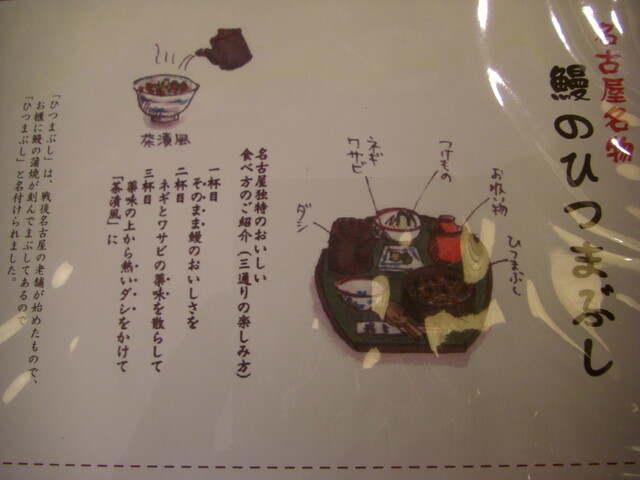 名古屋名物
鰻のひつまぶし
お吸い物
ひつまぶし
つけもの
ネギ
ワサビ
ダシ
名古屋独特のおいしい
食べ方のご紹介(三通りの楽しみ方)
一杯目
そのまま鰻のおいしさを
二杯目
ネギとワサビの薬味を散らして
三杯目
薬味の上から熱いダシをかけて
「茶漬風」に
茶漬風
「ひつまぶし」は、戦後名古屋の老舗が始めたもので、
お櫃に鰻の蒲焼が刻んでまぶしてあるので
「ひつまぶし」と名付けられました。